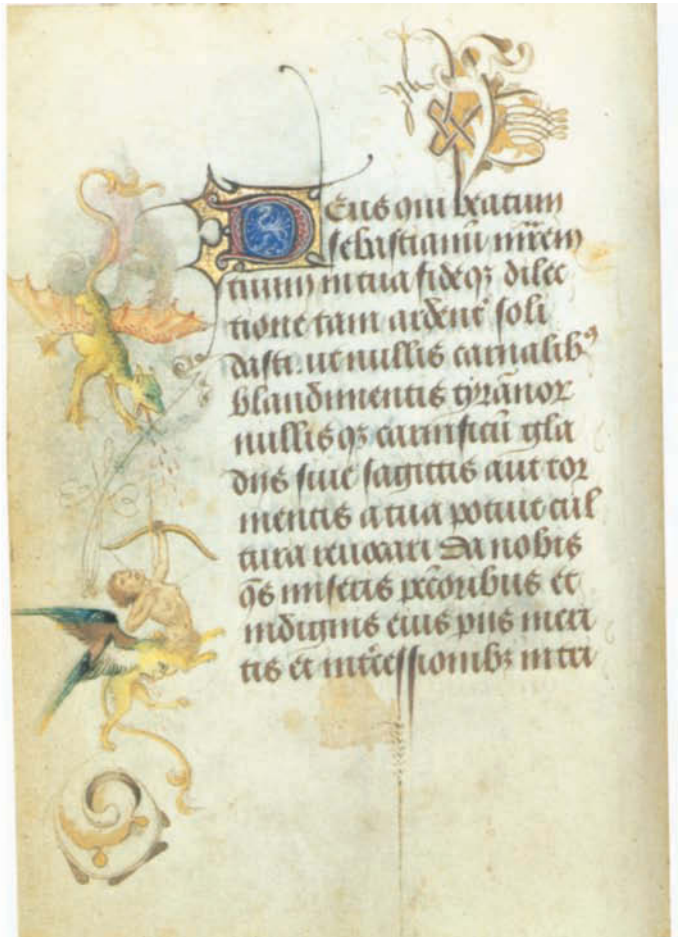 Deus qui beatum
sebastianū mr̄em
tuum in tua fide qꝫ dilec
tione tam ardent᷒ soli
dasti. ut nullis carnalibꝰ
blandimentis tyrānoꝝ
nullis qꝫ carnificū gla
diis siue sagittis aut tor
mentis a tua potuit cul
tura reuocari Da nobis
q̄s miseris pcc̄oribus et
indignis eius piis meri
tis et int̄cessionibꝫ in tri